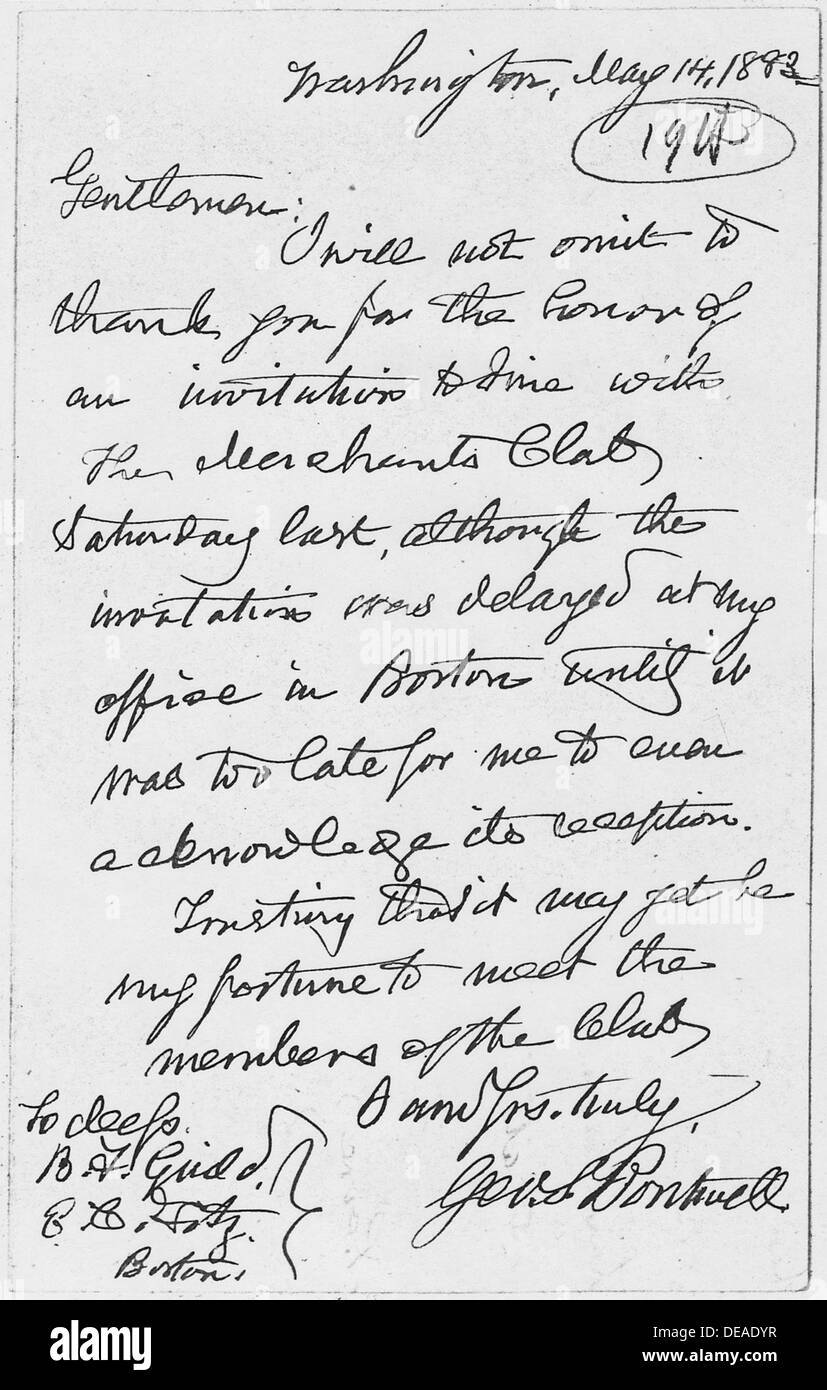 Washington, May 14, 1883
Gentlemen:
I will not omit to
thank you for the honor of
an invitation to dine with
the Merchants Club
Saturday last, although the
invitation was delayed at my
office in Boston until it
was too late for me to even
acknowledge its reception.
Trusting that it may yet be
my fortune to meet the
members of the Club
I am Yrs. truly,
Geo. S. Boutwell
To Messrs.
B. F. Guild.
Boston.
alamy
Image ID: DEADYR
www.alamy.com